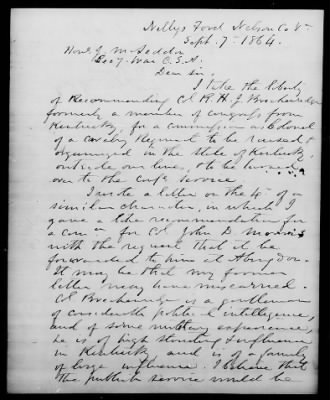 Nellys Ford Nelson Co Va
Sept. 7th 1864.
Hon. J. M. Seddon
Secy. War C.S.A.
Dear sir,
I take the liberty
of Recommending Col R. H. J. Breckinridge
formerly a member of congress from
Kentucky, for a commission as Colonel
of a cavalry Regiment to be raised &
organized in the state of Kentucky
outside our lines, & to be
over to the Confe service
I wrote a letter on the 4th of a
similar character, in which I
gave a like recommendation for
a com for Col John D Morris
with the request that it be
forwarded to him at Abingdon.
It may be that my former
letter may have miscarried.
Col Breckinridge is a gentleman
of considerable political intelligence,
and of some military experience,
he is of high standing & influence
in Kentucky and is of a family
of large influence. I believe that
the public service would be